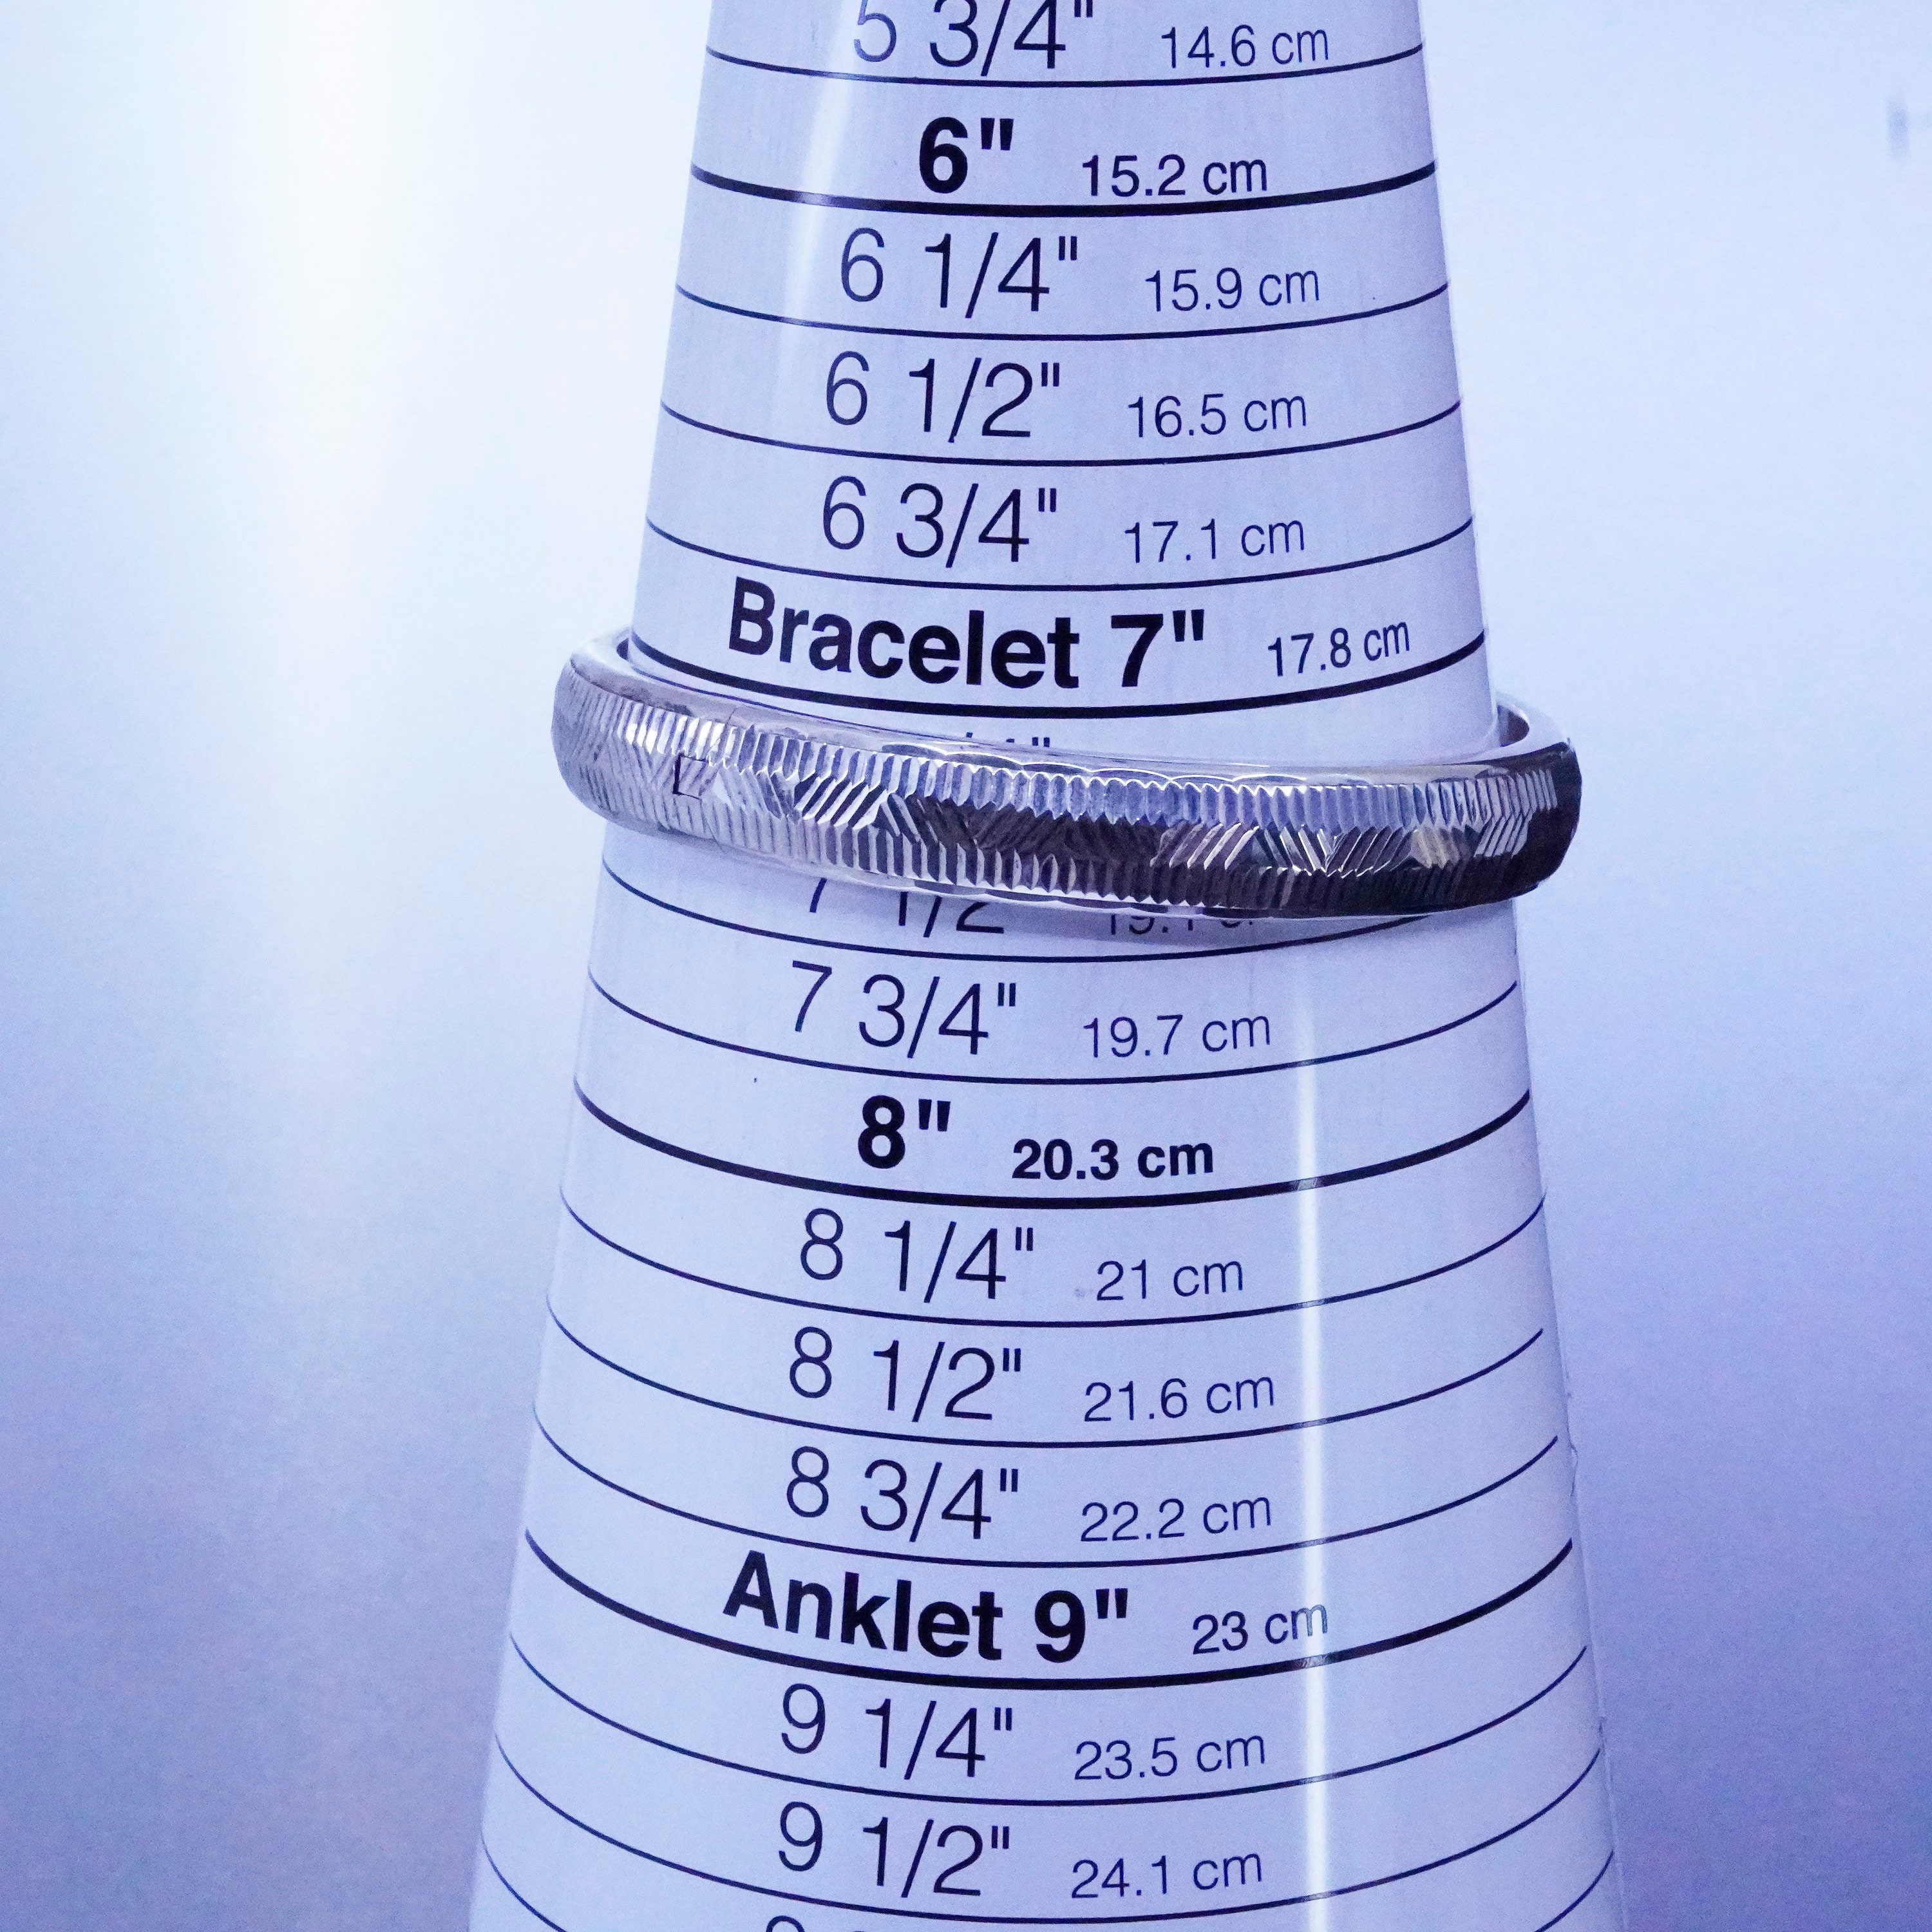 5 3/4" 14.6 cm
6" 15.2 cm
6 1/4" 15.9 cm
6 1/2" 16.5 cm
6 3/4" 17.1 cm
Bracelet 7" 17.8 cm
7 1/2 19.1
7 3/4" 19.7 cm
8" 20.3 cm
8 1/4" 21 cm
8 1/2" 21.6 cm
8 3/4" 22.2 cm
Anklet 9" 23 cm
9 1/4" 23.5 cm
9 1/2" 24.1 cm